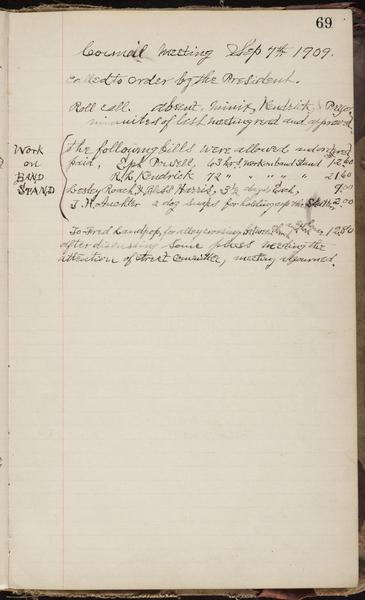 69
Council Meeting Sep 7th 1909.
called to order by the President.
Roll call. absent, Minix, Kendrick &
minuites of last meeting read and approved.
Work on BAND STAND
The following bills were allowed and ordered
paid, Powell, 63 hrs work on band stand 12.60
R.L. Kendrick 72 " " " " " 21.60
Lesley Roach & Harris, 3½ days Each, 9.00
J. H. 2 day for holding up the 2.00
To Fred for alley crossing between 12.80
after discussing some places needing the
attention of street committee, meeting adjourned.